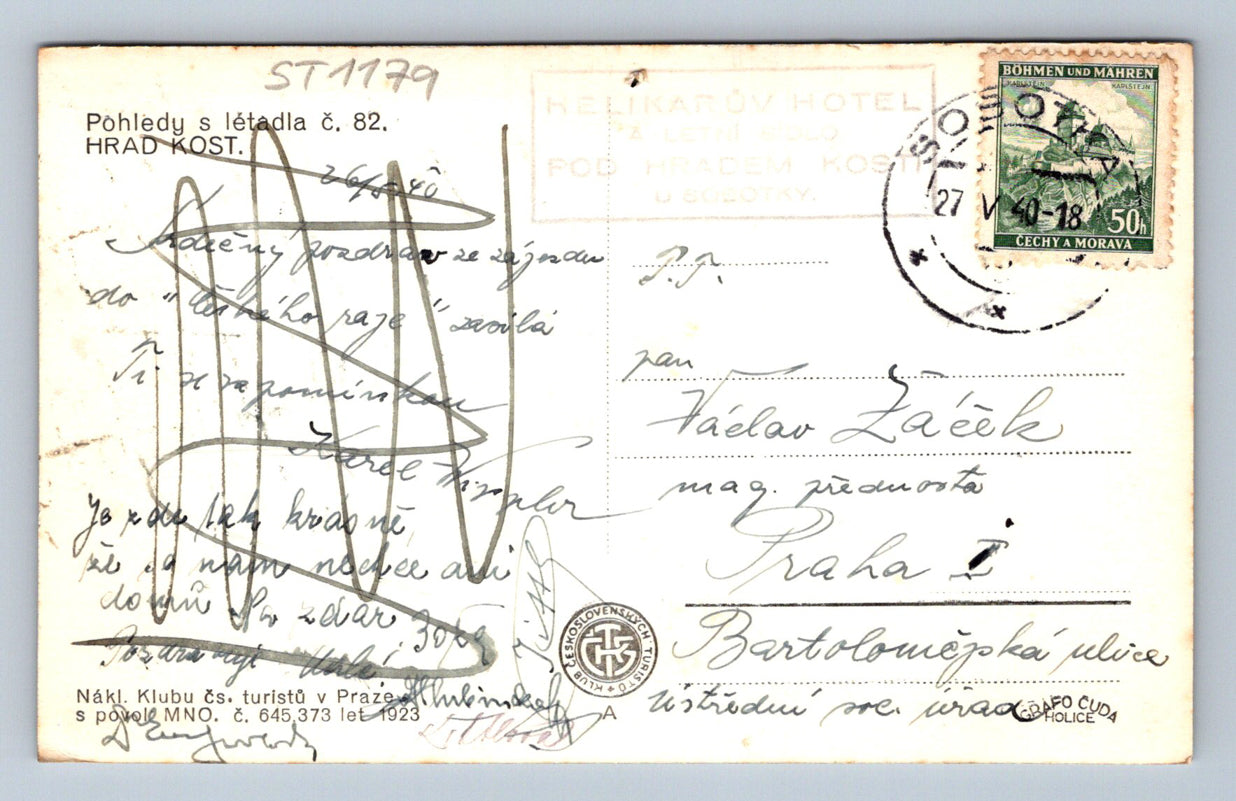 ST1179
Pohledy s létadla č. 82.
HRAD KOST.
HELIKARŮV HOTEL
A LETNÍ SÍDLO
POD HRADEM KOSTÍ
U SOBOTKY.
BÖHMEN UND MÄHREN
KARLSTEJN KARLSTEIN
50h
ČECHY A MORAVA
SOBOTKA
27 V 40-18
26/5 40
Srdečný pozdrav ze zájezdu
do "Českého raje" zasílá
Ti se vzpomínkou
Karel
Je zde tak krásně
že se nám nechce ani
domů Na zdar
Pozdravuje
P. T.
pan
Václav Žáček
mag. přednosta
Praha I
Bartolomějská ulice
Ústřední soc. úřad
KLUB ČESKOSLOVENSKÝCH TURISTŮ
Nákl. Klubu čs. turistů v Praze
s povol MNO. č. 645,373 let 1923
A
GRAFO ČUDA
HOLICE